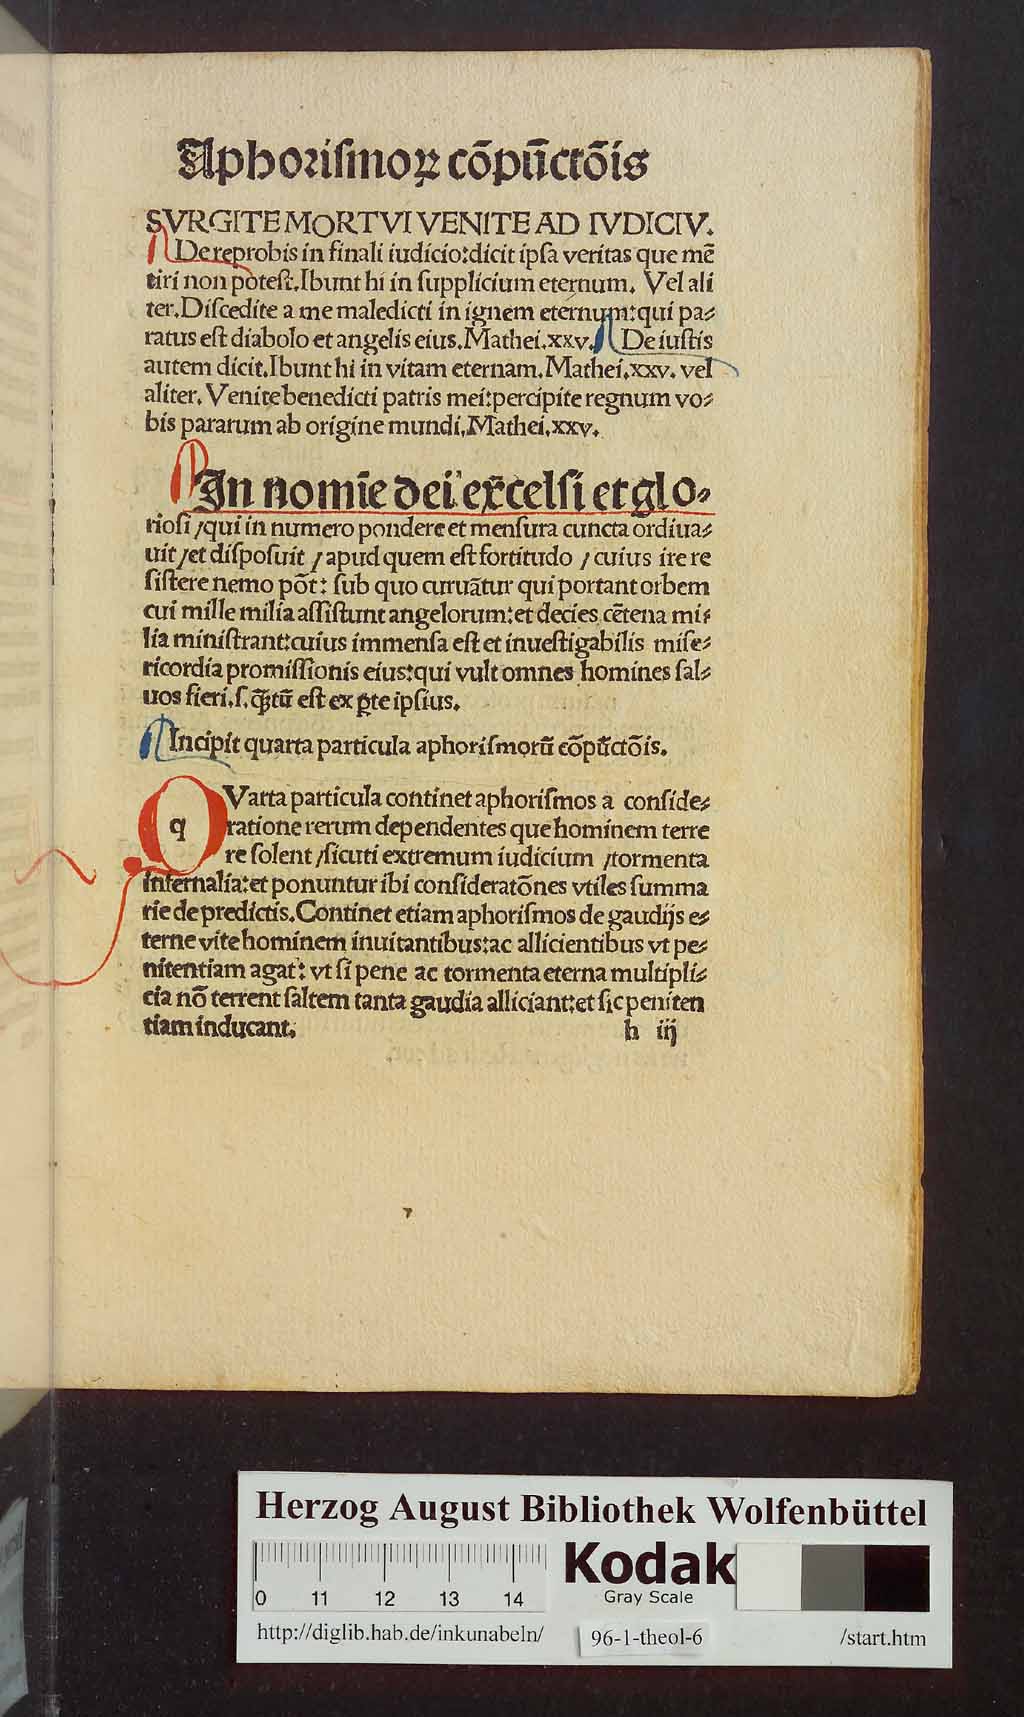 Aphorismoꝝ cōpūctōis
SVRGITE MORTVI VENITE AD IVDICIV.
De reprobis in finali iudicio:dicit ipſa veritas que mē
tiri non poteſt.Ibunt hi in ſupplicium eternum. Vel ali
ter.Diſcedite a me maledicti in ignem eternum:qui pa⸗
ratus eſt diabolo et angelis eius.Mathei.xxv. De iuſtis
autem dicit.Ibunt hi in vitam eternam.Mathei.xxv. vel
aliter. Venite benedicti patris mei:percipite regnum vo⸗
bis pararum ab origine mundi.Mathei.xxv.
In nomīe dei excelſi et glo⸗
rioſi /qui in numero pondere et menſura cuncta ordiua⸗
uit /et diſpoſuit /apud quem eſt fortitudo /cuius ire re
ſiſtere nemo pōt: ſub quo curuātur qui portant orbem
cui mille milia aſſiſtunt angelorum:et decies cētena mi⸗
lia miniſtrant:cuius immenſa eſt et inueſtigabilis miſe⸗
ricordia promiſſionis eius:qui vult omnes homines ſal⸗
uos fieri.ſ.qꝫtū eſt ex ꝑte ipſius.
Incipit quarta particula aphoriſmorū cōpūctōis.
q
QVarta particula continet aphoriſmos a conſide⸗
ratione rerum dependentes que hominem terre
re ſolent /ſicuti extremum iudicium /tormenta
infernalia:et ponuntur ibi conſideratōnes vtiles ſumma
rie de predictis.Continet etiam aphoriſmos de gaudijs e⸗
terne vite hominem inuitantibus:ac allicientibus vt pe⸗
nitentiam agat: vt ſi pene ac tormenta eterna multipli⸗
cia nō terrent ſaltem tanta gaudia alliciant:et ſic peniten
tiam inducant.
h iij
Herzog August Bibliothek Wolfenbüttel
0 11 12 13 14
Kodak
Gray Scale
http://diglib.hab.de/inkunabeln/ 96-1-theol-6 /start.htm